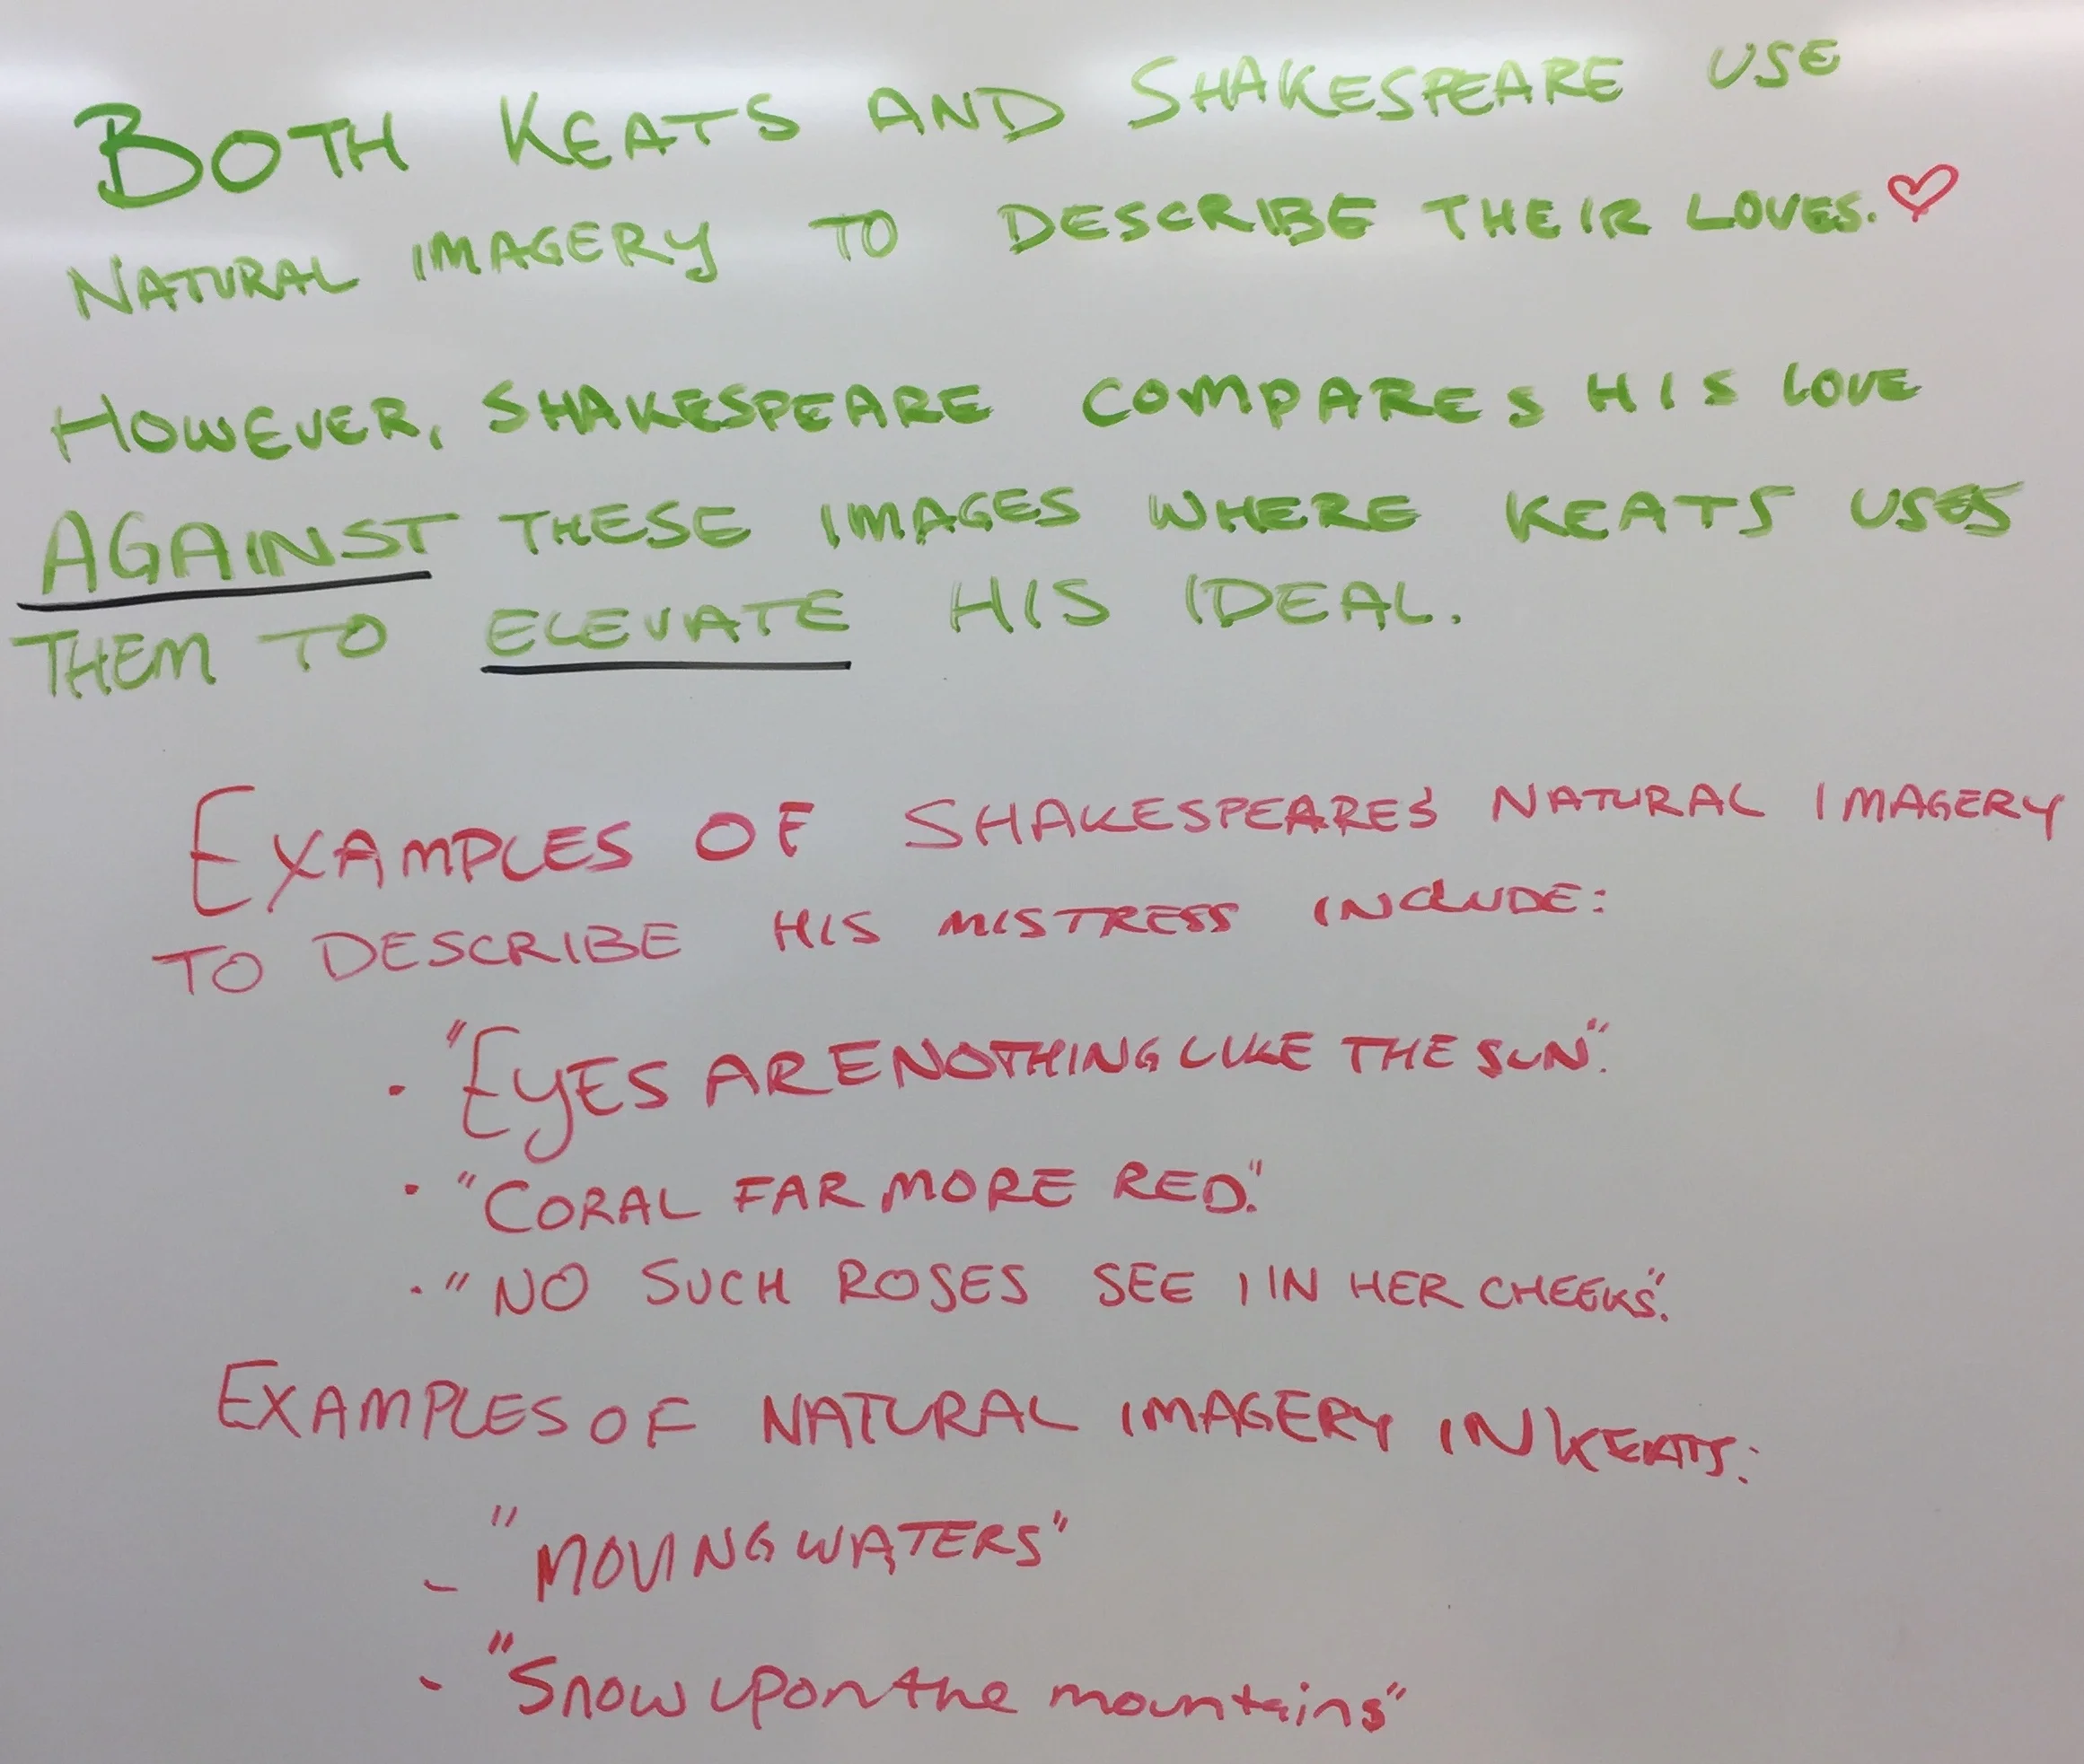 BOTH KEATS AND SHAKESPEARE USE
NATURAL IMAGERY TO DESCRIBE THEIR LOVES.
HOWEVER, SHAKESPEARE COMPARES HIS LOVE
AGAINST THESE IMAGES WHERE KEATS USES
THEM TO ELEVATE HIS IDEAL.
EXAMPLES OF SHAKESPEARE'S NATURAL IMAGERY
TO DESCRIBE HIS MISTRESS INCLUDE:
• "EYES ARE NOTHING LIKE THE SUN".
• "CORAL FAR MORE RED."
• "NO SUCH ROSES SEE I IN HER CHEEKS".
EXAMPLES OF NATURAL IMAGERY IN KEATS:
- "MOVING WATERS"
- "Snow upon the mountains"